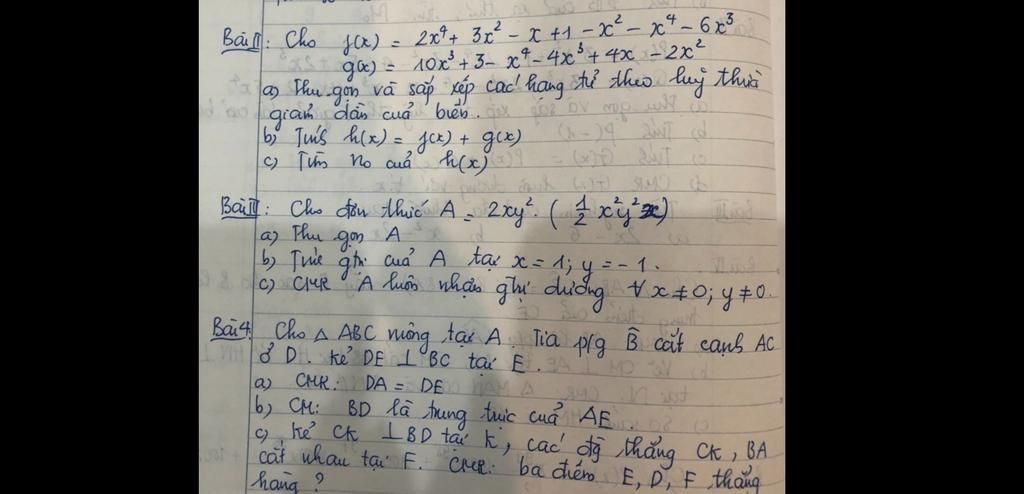 Bài II: Cho f(x) = 2x⁴ + 3x² - x + 1 - x² - x⁴ - 6x³
g(x) = 10x³ + 3 - x⁴ - 4x³ + 4x - 2x²
a) Thu gọn và sắp xếp các hạng tử theo luỹ thừa
giảm dần của biến.
b) Tính h(x) = f(x) + g(x)
c) Tìm no của h(x)
Bài III: Cho đơn thức A = 2xy². (1/2 x²y²x)
a) Thu gọn A
b) Tính gtrị của A tại x = 1; y = -1.
c) CMR A luôn nhận gtrị dương ∀ x ≠ 0; y ≠ 0.
Bài 4. Cho △ ABC vuông tại A Tia p/g B̂ cắt cạnh AC
ở D. Kẻ DE ⊥ BC tại E.
a) CMR: DA = DE
b) CM: BD là trung trực của AE.
c) Kẻ CK ⊥ BD tại K, các đg thẳng CK, BA
cắt nhau tại F. CMR: ba điểm E, D, F thẳng
hàng?